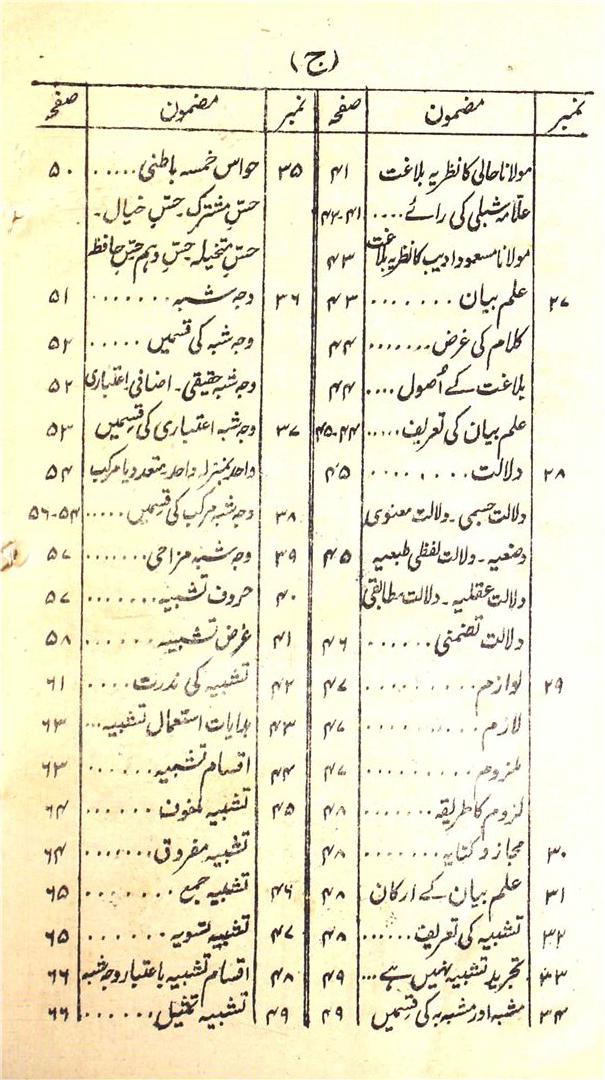 (ج)
نمبر مضمون صفحہ
مولانا حالی کا نظریہ بلاغت ۴۱
علّامہ شبلی کی رائے .... ۴۱-۴۲
مولانا مسعود ادیب کا نظریہ بلاغت ۴۳
۲۷ علم بیان ........ ۴۳
کلام کی غرض ....... ۴۴
بلاغت کے اُصول .... ۴۴
علم بیان کی تعریف ..... ۴۴-۴۵
۲۸ دلالت ........ ۴۵
دلالت جسمی - دلالت معنوی
وضعیہ - دلالت لفظی طبعیہ ۴۵
دلالت عقلیہ - دلالت مطابقی
دلالت تضمنی ...... ۴۶
۲۹ لوازم ......... ۴۷
لازم ......... ۴۷
ملزوم .......... ۴۷
لزوم کا طریقہ ....... ۴۸
۳۰ مجاز و کنایہ ........ ۴۸
۳۱ علم بیان کے ارکان ۴۸
۳۲ تشبیہ کی تعریف ...... ۴۸
۳۳ تجرید تشبیہ نہیں ہے ... ۴۹
۳۴ مشبہ اور مشبہ بہ کی قسمیں ۴۹
نمبر مضمون صفحہ
۳۵ حواس خمسہ باطنی ..... ۵۰
حسِّ مشترک - حسِّ خیال -
حسِّ متخیلہ حسِّ وہم حسِّ حافظہ
۳۶ وجہ شبہ ....... ۵۱
وجہ شبہ کی قسمیں ..... ۵۲
وجہ شبہ حقیقی - اضافی اعتباری ۵۲
۳۷ وجہ شبہ اعتباری کی قسمیں ۵۳
واحد بمنزلہ واحد - متعدد یا مرکب ۵۴
۳۸ وجہ شبہ مرکب کی قسمیں ..... ۵۴-۵۶
۳۹ وجہ شبہ مزاحی ....... ۵۷
۴۰ حروف تشبیہ ....... ۵۷
۴۱ غرض تشبیہ ...... ۵۸
۴۲ تشبیہ کی ندرت .... ۶۱
۴۳ ہدایات استعمال تشبیہ ... ۶۳
۴۴ اقسام تشبیہ ...... ۶۳
۴۵ تشبیہ ملفوف ...... ۶۴
تشبیہ مفروق ....... ۶۴
۴۶ تشبیہ جمع ........ ۶۵
۴۷ تشبیہ تسویہ ...... ۶۵
۴۸ اقسام تشبیہ باعتبار وجہ شبہ ۶۶
۴۹ تشبیہ تمثیل ...... ۶۶